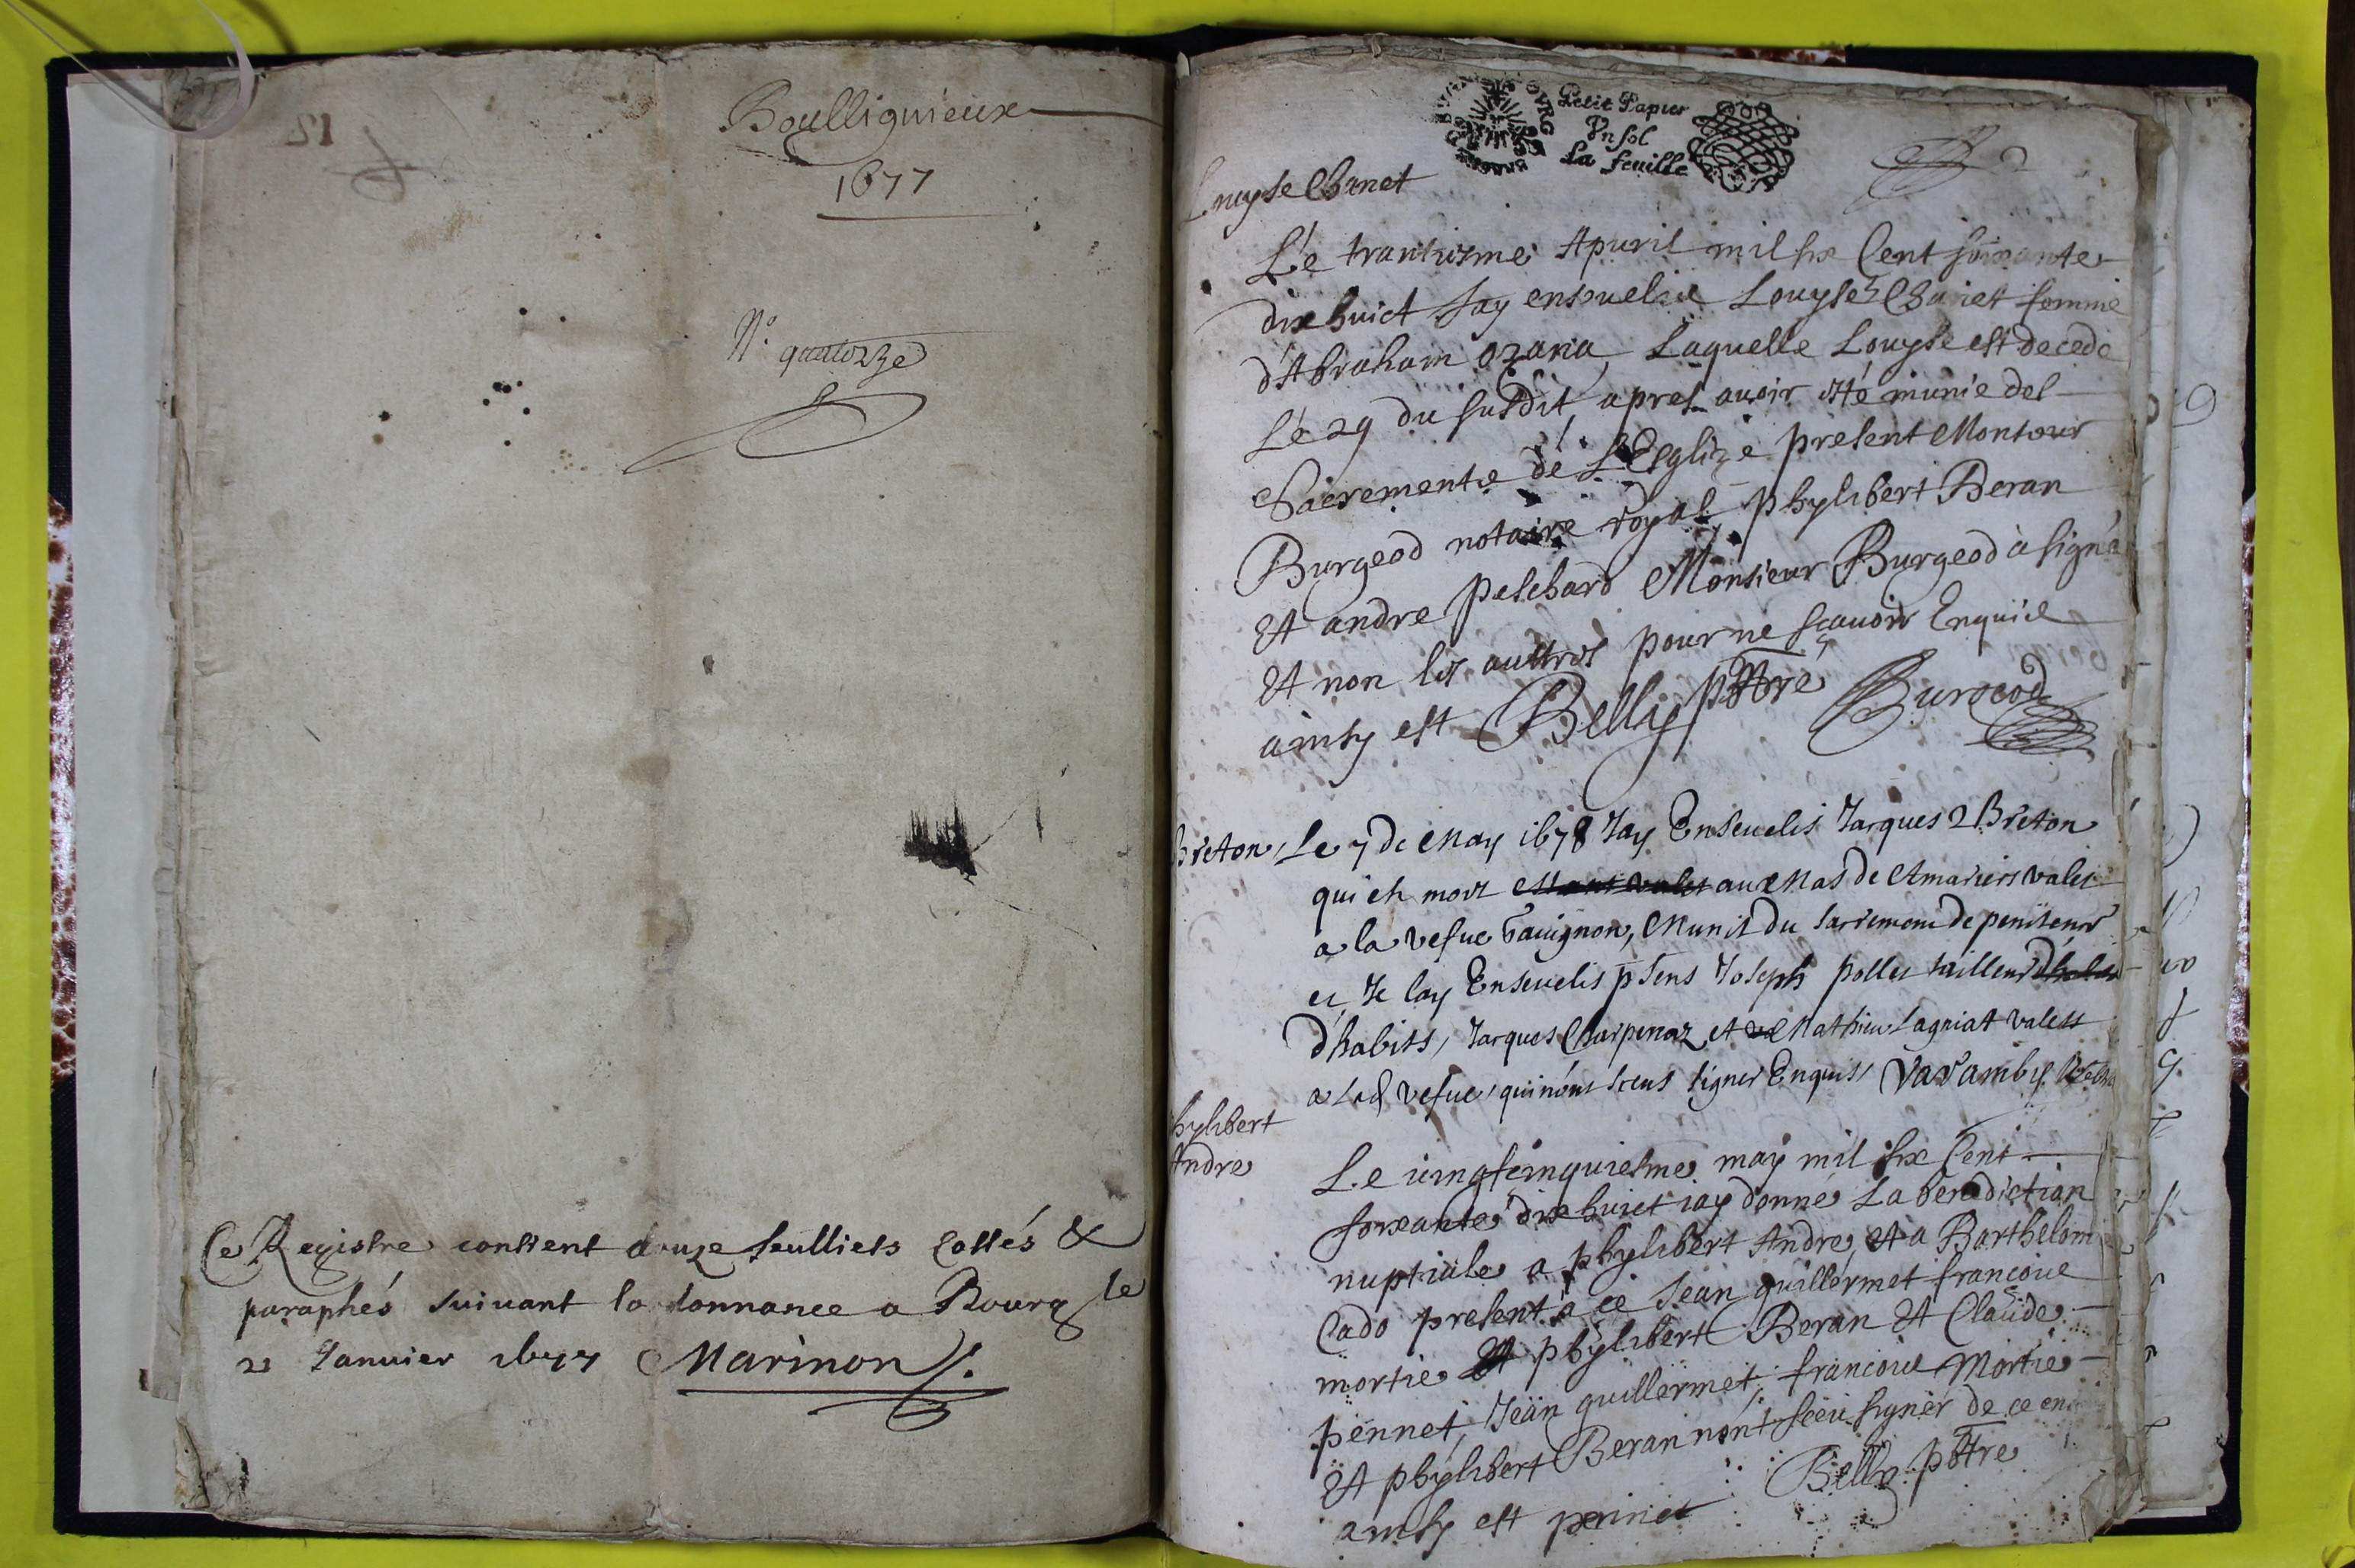 Boullignieux
1677
N°. quatorze
Ce Registre contient douze feulliets Cottés &
paraphés suivant lordonnance a Bourg le
2e Janvier 1677 Marinon
Petit Papier
Vn sol
La feuille
Louyse Chanet
Le trantiesme Apuril mil six Cent soixante
dix huict Jay ensouelie Louyse Chanet femme
d'Abraham ozana, Laquelle Louyse est decede
Le 29 du susdit, apres auoir esté munie des
Sacrements de L'Esglize present Monsieur
Burgeod notaire royal, phylibert Beran
Et andre peschard Monsieur Burgeod à signé
Et non les auttres pour ne sçauoir Enquis
ainsy est Belly pbtre Burgeod
Breton Le 7 de May 1678 Jay Enseuelis Jacques Breton
qui est mort aux Mas de valet
a la vefue Gauignon, Munit du sacrement de penitence
et Je lay Enseuelis psens Joseph pollet tailleur
d'habits, Jacques Charpenaz et Mathieu Lagniat valets
a lad vefue, qui nont sceus signer Enquis, Varamby
phylibert
Andre
Le vingtcinquiesme may mil six Cent
soixante dix huict iay donné La benediction
nuptiale a phylibert Andre, et a Barthelom
Cado present a ce Jean guillermet françois
mortie Et phylibert Beran Et Claude
pennet, Jean guillermet, francois Mortie
Et phylibert Beran nont sceu signer de ce en
ainsy est pennet Belly pbtre